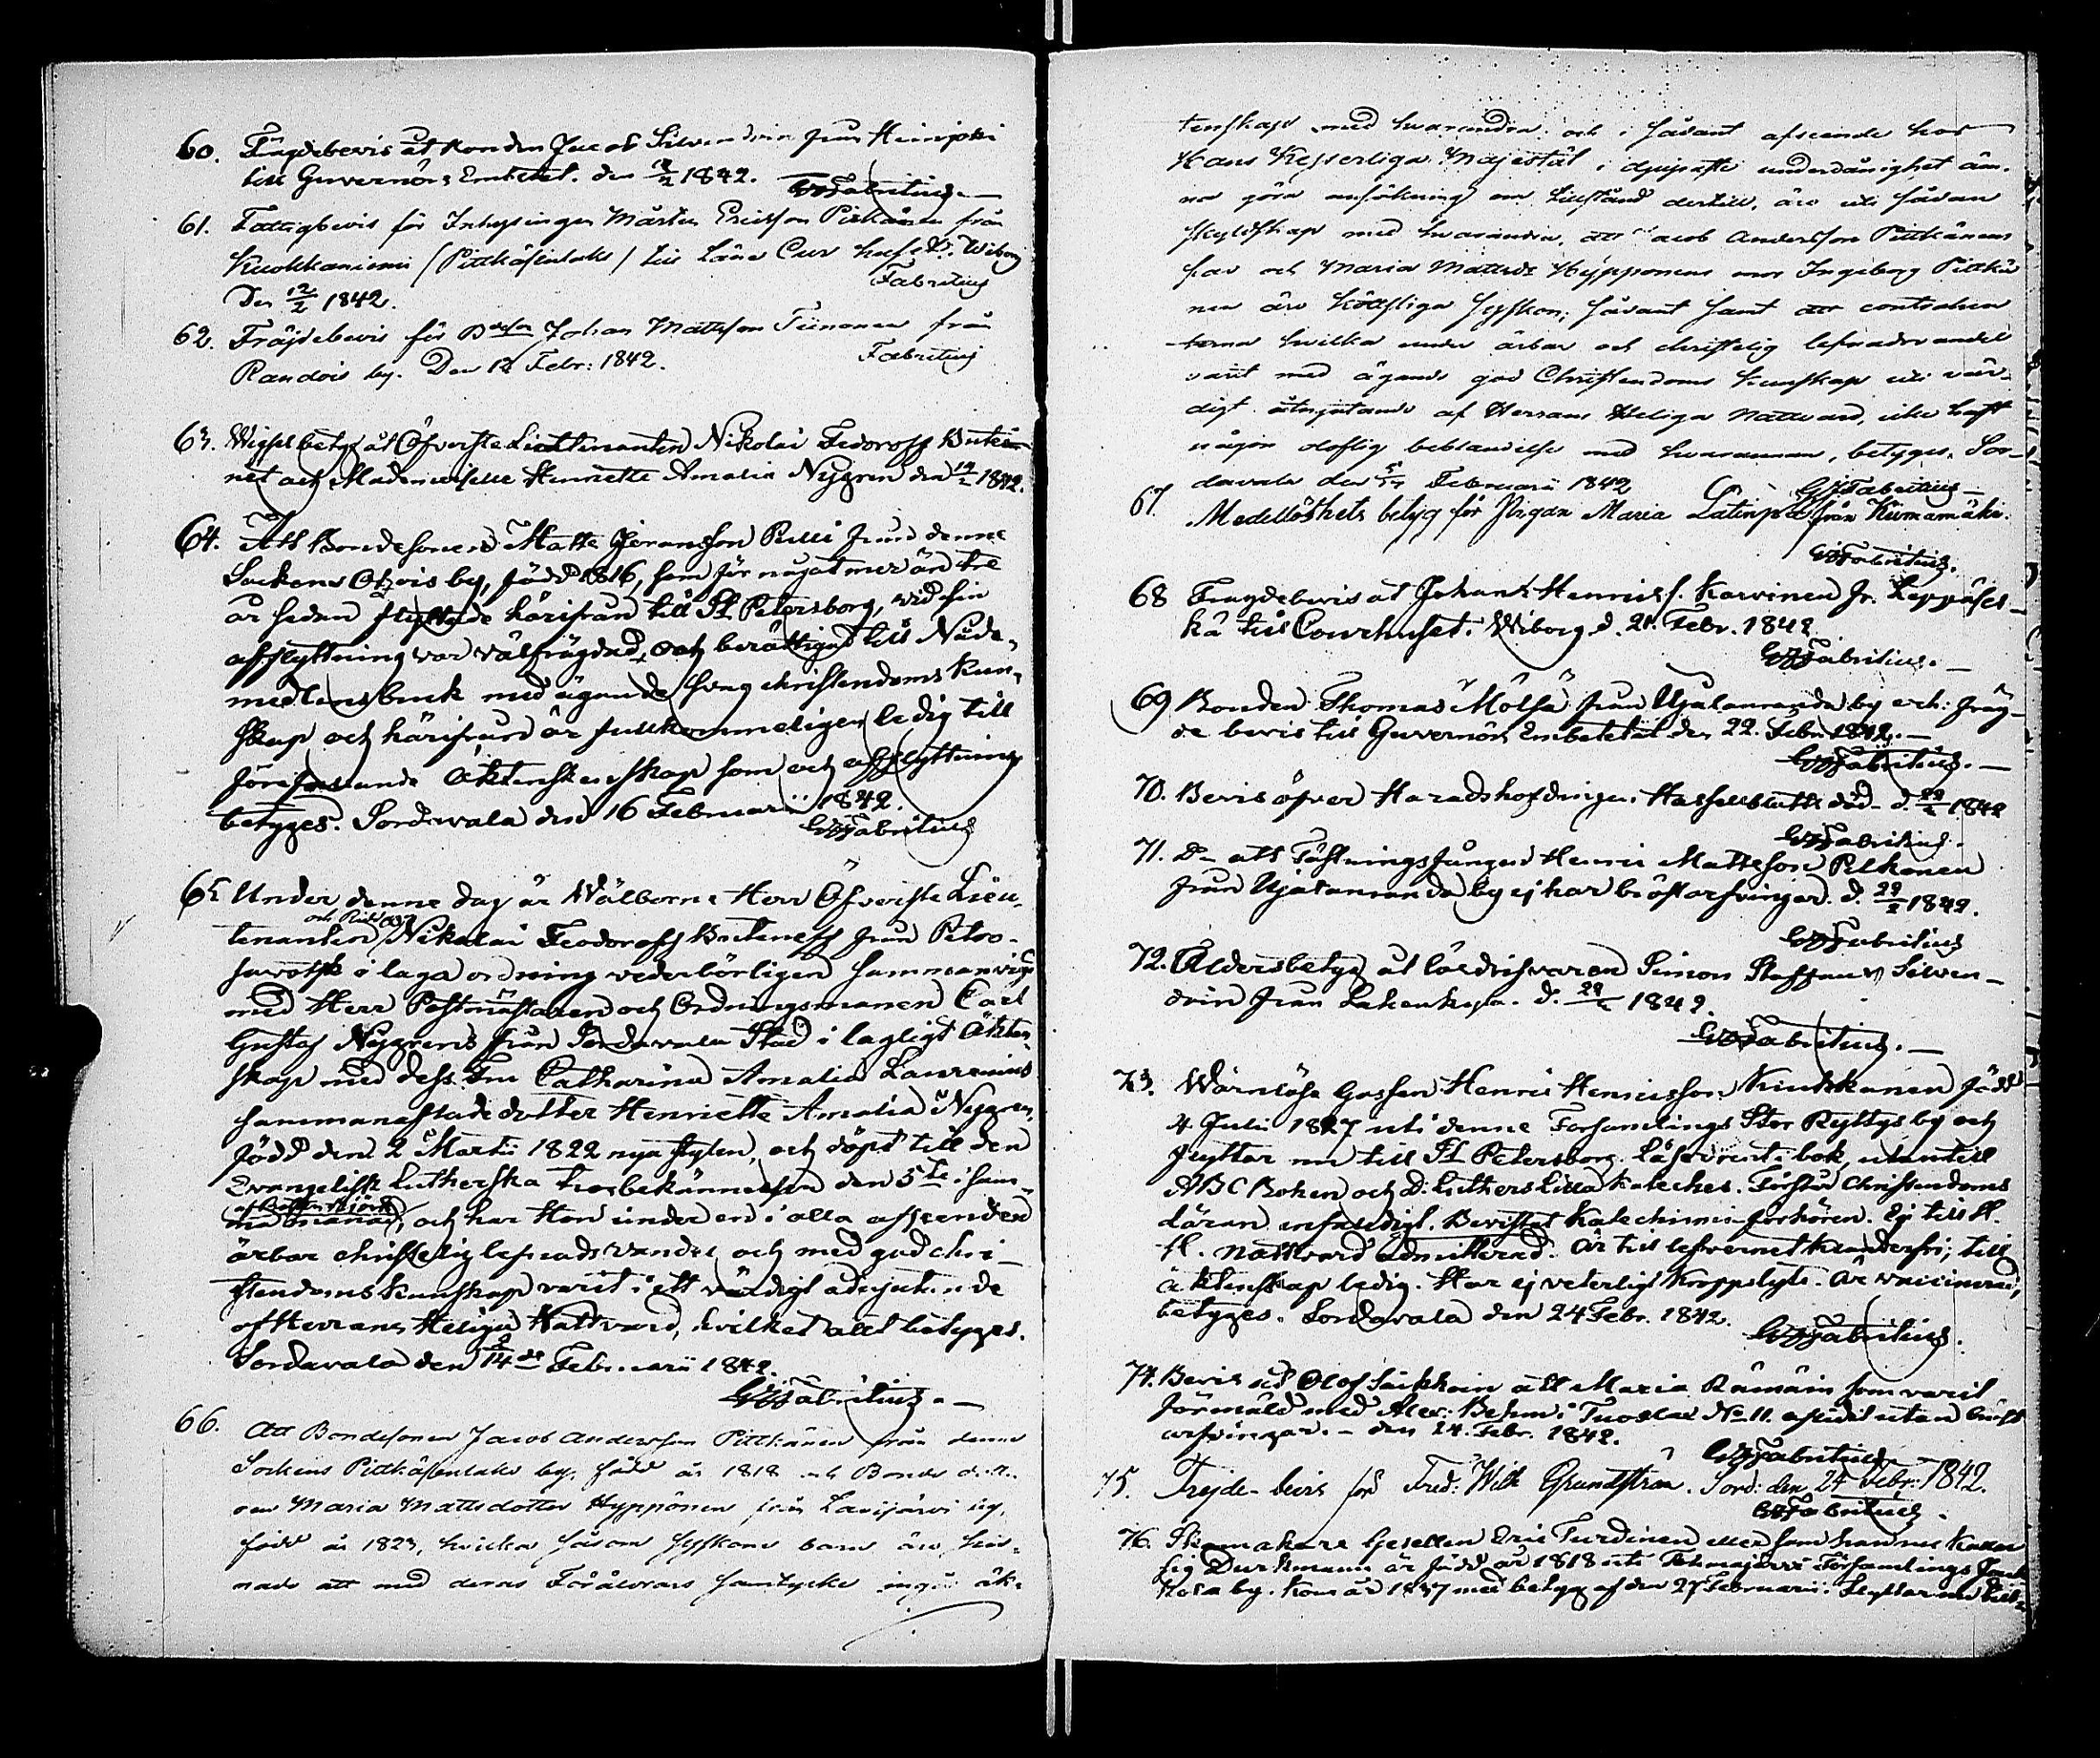 60. Frägdebevis åt Bonden Jacob Silvendoin från Heinjoki
till Guvernörs Embetet. den 12/2 1842. GJFabritius.
61. Fattigbevis för Inhysingen Mårten Ericsson Pitkänen från
Kuokkaniemi (Pittkäsenlaks) till Läns Cur huset i Wiborg
Den 12/2 1842. Fabritius
62. Fräjdebevis för Johan Mattsson Tiinanen från
Randois by. Den 12 Febr: 1842. Fabritius
63. betyg åt Öfverste Lieutenanten Nikolai Fedoroff Bute-
neff och Mademoiselle Henriette Amalia Nygren den 14/2 1842.
64. Att Bondesonen Matts Göransson Pulli från denne
Sockens Otsois by, född 1816, som för något mer än tre
år sedan flyttade härifrån till St Petersborg, vid sin
afflyttning var välfrägdad, och berättigad till Nåde-
medlens bruk med ägande svag christendoms kun-
skap och härifrån är fullkommeligen ledig till
förefallande Äktenskap som och afflyttning
betyges. Sordavala den 16 Februarii 1842.
GJFabritius
65 Under denne dag är Wälborne Herr Öfverste Lieu-
tenanten och Riddaren Nikolai Feodoroff Buteneff från Petro-
savotsk i laga ordning vederbörligen sammanvigd
med Herr Postmästaren och Ordningsmannen Carl
Gustaf Nygrens från Sordavala Stad i lagligt Äkten-
skap med dess Fru Catharina Amalia Laurenius
sammanaflade dotter Henriette Amalia Nygren,
född den 2 Martii 1822 nya stylen, och döpt till den
Evangelisk Lutherska trosbekännelsen den 5te i sam-
ma månad, och har Hon under en i alla afseenden
ärbar christelig lefnadsvandel och med god chri-
stendoms kunskap varit i ett värdigt åtnjutande
af Herrans Heliga Nattvard, hvilket allt betyges.
Sordavala den 2/14de Februarii 1842.
GJFabritius.
66. Att Bondesonen Jacob Andersson Pittkänen från denne
Sockens Pittkäsenlaks by, född år 1818 och Bonde dott-
ren Maria Mattsdotter Hyppönen från Lavijärvi by,
född år 1823, hvilka såsom syskone barn äro sin-
nade att med deras Föräldrars samtycke ingå äk-
tenskap med hvarandra och i sådant afseende hos
Hans Kejserliga Majestät i djupaste underdånighet äm-
na göra ansökning om tillstånd dertill, äro uti sådan
skyldskap med hvarandra, att Jacob Andersson Pittkänens
far och Maria Mattsdr Hyppönens mor Ingeborg Pittkä
nen äro köttsliga syskon; sådant samt att contrahen
terna hvilka under ärbar och christelig lefnadsvandel
varit med ägande god Christendoms kunskap uti vär-
digt åtnjutande af Herrans Heliga Nattvard, icke haft
någon oloflig beblandelse med hvarannan, betyges. Sor-
davala den Februarii 1842 GJFabritius
67. Medellöshets betyg för Pigan Maria från Kirmamäki.
GJFabritius.
68 Fragdebevis åt Johan Henrics. Karvinen fr. Leppäsel-
kä till Courhuset i Wiborg d. 21. Febr. 1842
GJFabritius.
69 Bonden Thomas Mölsä från Ujalanranda by erh: fräg-
de bevis till Guvernörs Embetet den 22. Febr 1842.
GJFabritius.
70. Bevis öfver Haradshöfdingen Hasselblatts död d. 22/2 1842
GJFabritius.
71. D- att Fästningsfången Henric Mattsson Pelkonen
från Ujalanranda by ej har bröstarfvingar. d. 22/2 1842.
GJFabritius
72. Åldersbetyg åt lösdrifvaren Simon Staffans Silven-
doin från Lahenkylä. d. 22/2 1842.
GJFabritius.
73. Wärnlösa Gossen Henric Henricsson född
4 Julii 1827 uti denne Forsamlings Stor Ryttys by och
flyttar nu till St Petersborg. Läser rent i bok, utantill
ABC Boken och D. Luthers Lilla Kateches. Förstår Christendoms
läran enfaldigt. Bevistat Katechismi förhören. Ej till H.
H. Nattvard admitterad. Är till lefvernet klanderfri, till
äktenskap ledig. Har ej veterligt kroppslyte. Är vaccinerad,
betyges. Sordavala den 24 Febr. 1842.
GJFabritius.
74. Bevis åt Olof att Maria Rämäin som varit
förmäld med Alex: Behm i Tuoslax No 11. aflidit utan bröst
arfvingar. - den 24. Febr. 1842.
GJFabritius
75. Frejde-bevis för Fred: Wilh Grundström. Sord: den 24 Febr: 1842.
GJFabritius.
76. Skomakare Gesellen Eric Turdinen eller som han nu kallar
sig Durkmann är född år 1818 uti Tohmajärvi Församlings
by. Kom år 1837 med betyg af den 27 Februarii. Flyttar nu till-